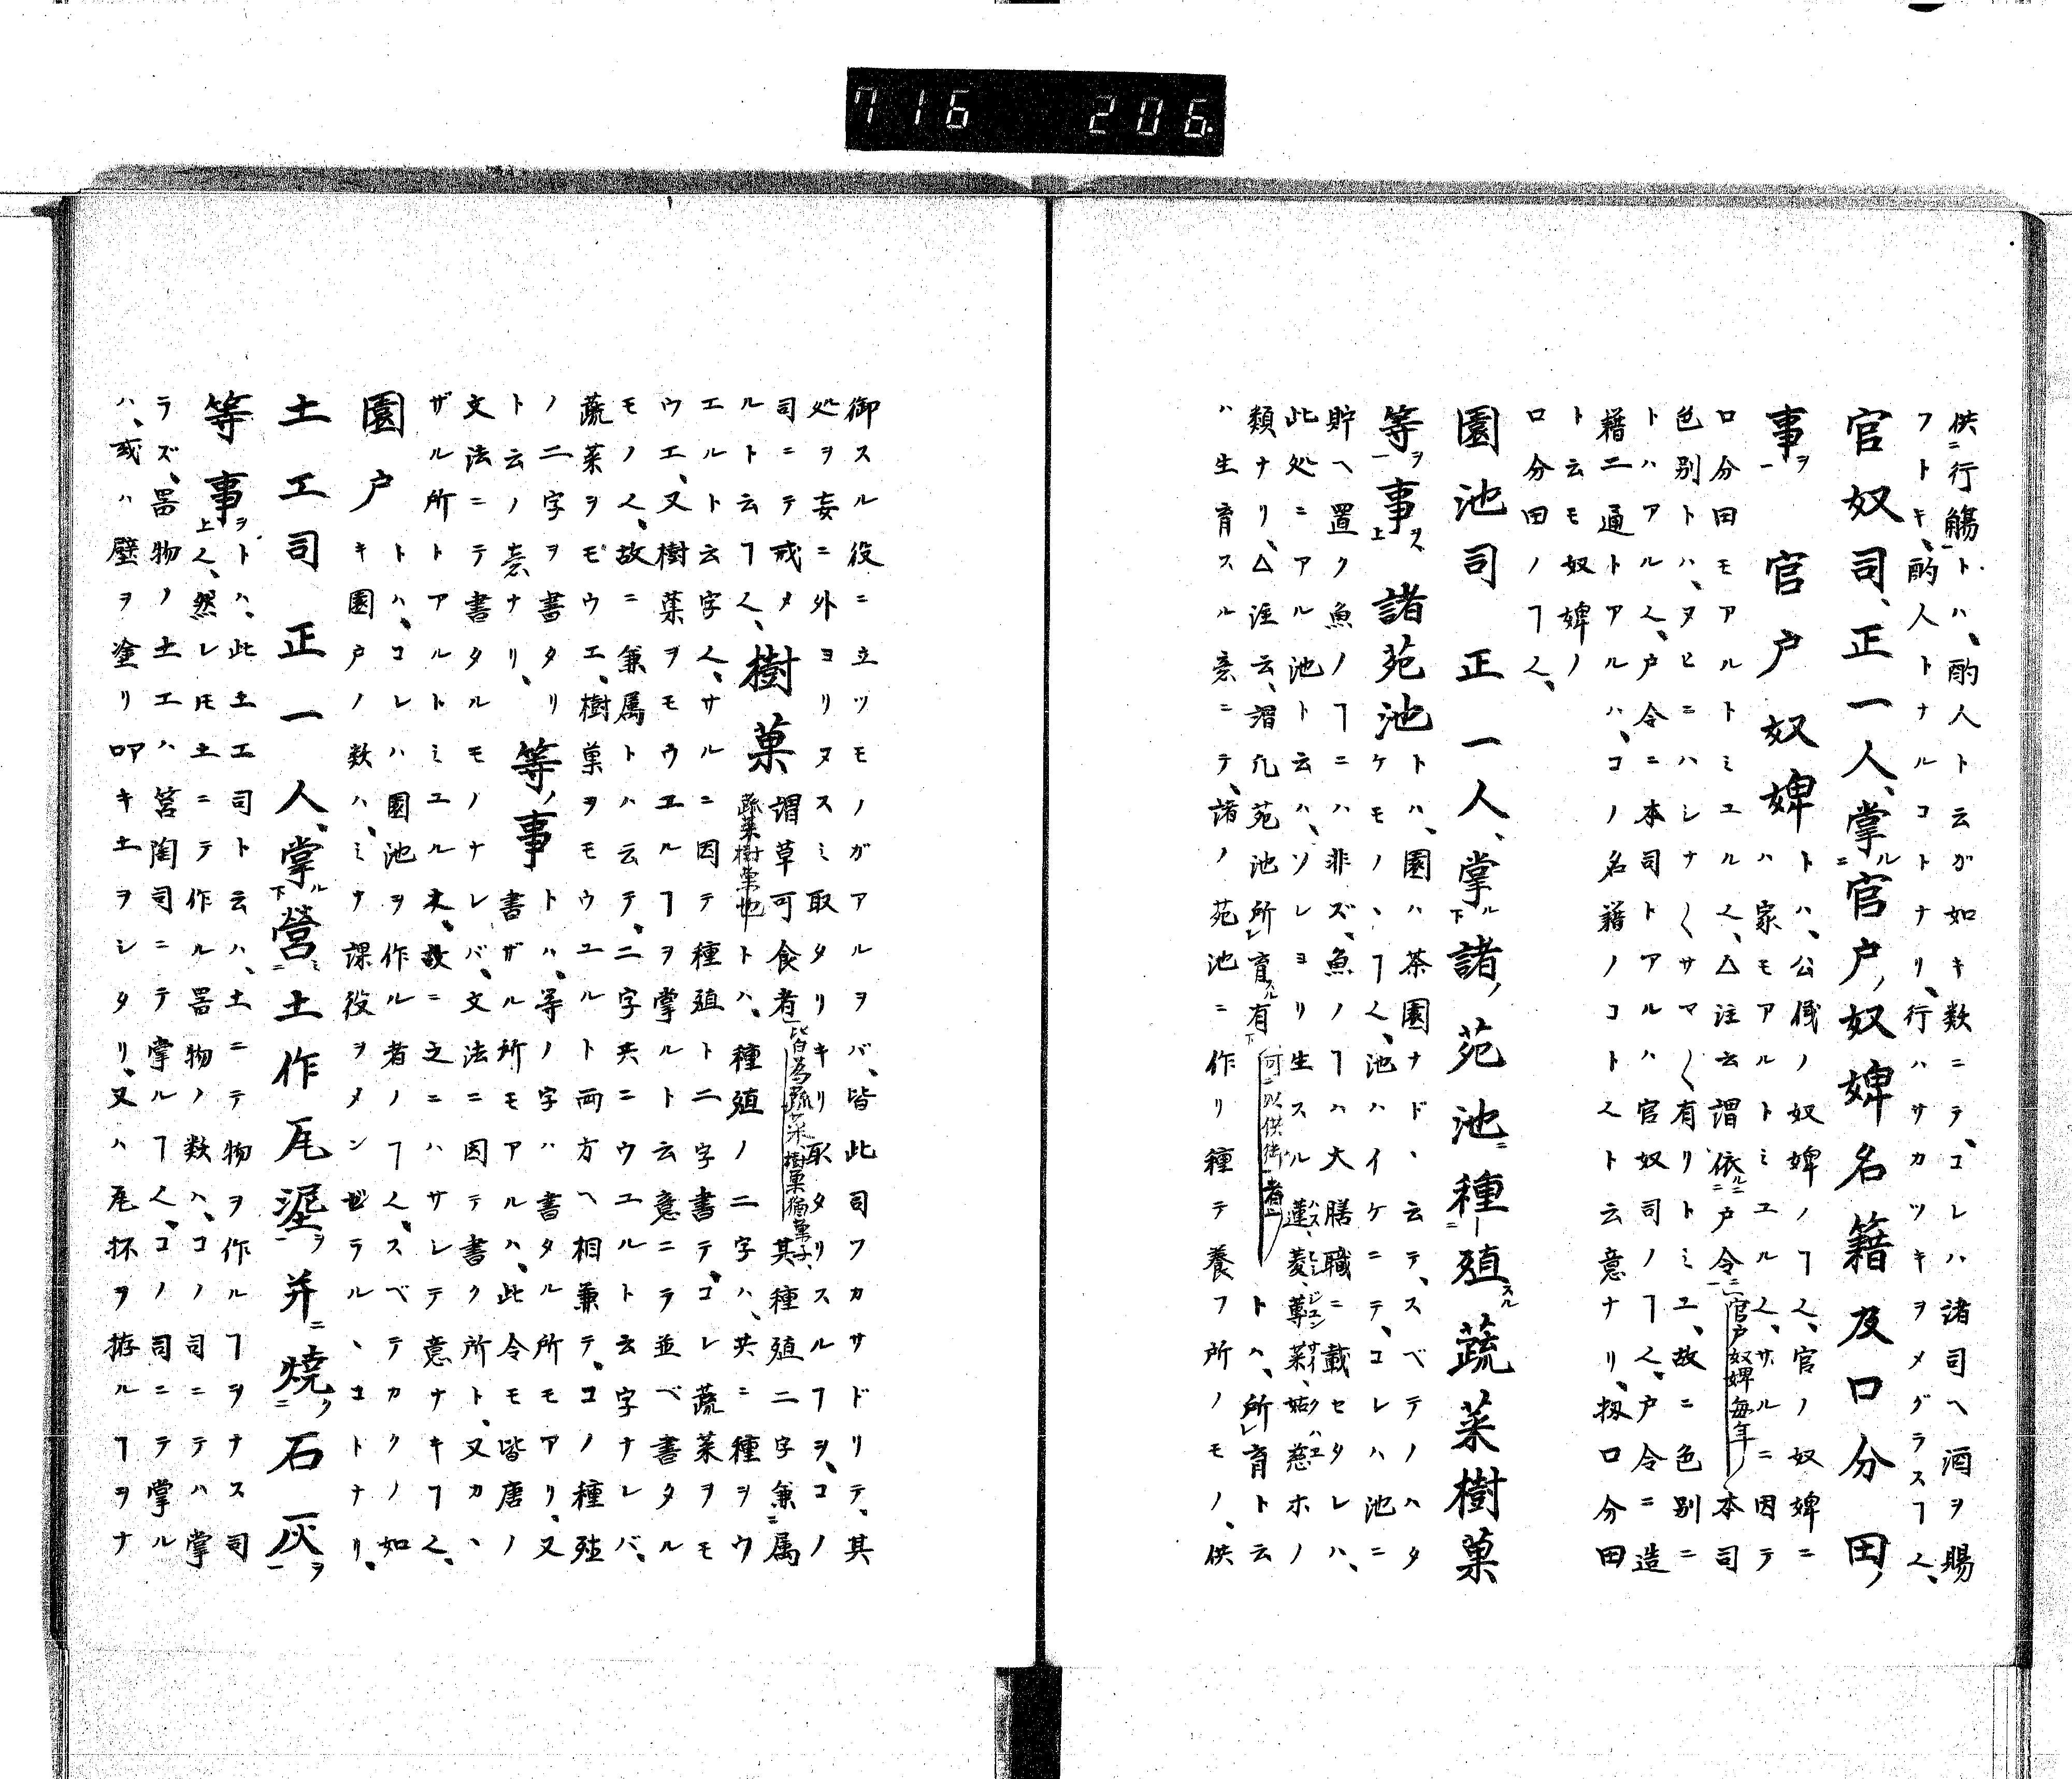 716 206.
供ニ行觴トハ、酌人ト云ガ如キ数ニテ、コレハ諸司ヘ酒ヲ賜
フトキ、酌人トナルコトナリ、行ハサカツキヲメグラスヿ也、
官奴司、正一人、掌ル官户奴婢名籍及口分田ノ
事ヲ 官户奴婢トハ、公儀ノ奴婢ノヿ也、官ノ奴婢ニ
ハ家モアルトミユル也、サルニ因テ
口分田モアルトミユル也、△注云謂依ルニ户令ニ官户奴婢毎年本司
色別トハ、ヌヒニハシナ〱サマ〱有リトミユ、故ニ色別ニ
トハアル也、户令ニ本司トアルハ官奴司ノヿ也、户令ニ造
籍二通トアルハ、コノ名籍ノコト也ト云意ナリ、扨口分田
ト云モ奴婢ノ
口分田ノヿ也、
園池司 正一人、掌ル諸ノ苑池ニ種殖スル蔬菜樹菓
等ヲ事ヲ 諸苑池トハ、園ハ茶園ナド、云テ、スベテノハタ
ケモノ、ヿ也、池ハイケニテ、コレハ池ニ
貯ヘ置ク魚ノヿニハ非ズ、魚ノヿハ大膳職ニ載セタレハ、
此処ニアル池ト云ハ、ソレヨリ生スル蓮、菱、蓴菜、姑慈ホノ
類ナリ、△注云、謂凡苑池所育スル有下可ニ以供御者上トハ、所育ト云
ハ生育スル意ニテ、諸ノ苑池ニ作リ種テ養フ所ノモノ、供
御スル役ニ立ツモノガアルヲバ、皆此司フカサドリテ、其
処ヲ妄ニ外ヨリヌスミ取タリキリ取タリスルヿヲ、コノ
司ニテ戒メ 謂草可食者皆為蔬菜樹菓猶菓子、其種殖二字兼ニ属
ルト云ヿ也、樹菓 蔬菜樹菓也トハ、種殖ノ二字ハ、共ニ種ヲウ
エルト云字也、サルニ因テ種殖ト二字書テ、コレ蔬菜ヲモ
ウエ、又樹菓ヲモウエルヿヲ掌ルト云意ニテ並ベ書タル
モノ也、故ニ兼属トハ云テ、二字共ニウエルト云字ナレバ、
蔬菜ヲモウエ、樹菓ヲモウユルト両方ヘ相兼テ、コノ種殖
ノ二字ヲ書タリ 等ノ事トハ、等ノ字ハ書タル所モアリ、又
ト云ノ意ナリ、書ザル所モアルハ、此令モ皆唐ノ
文法ニテ書タルモノナレバ、文法ニ因テ書ク所ト、又カ、
ザル所トアルトミユル木、故ニ之ニハサレテ意ナキヿ也、
園户 トハ、コレハ園池ヲ作ル者ノヿ也、スベテカクノ如
キ園户ノ数ハ、ミナ課役ヲメンゼラル、コトナリ、
土工司 正一人、掌ル営ミ土作瓦埿ヲ并ニ焼ク石灰ヲ
等事ヲトハ、此土工司ト云ハ、土ニテ物ヲ作ルヿヲナス司
也、然レ𪜈土ニテ作ル噐物ノ数ハ、コノ司ニテハ掌
ラズ、噐物ノ土工ハ筥陶司ニテ掌ルヿ也、コノ司ニテ掌ル
ハ、或ハ壁ヲ塗リ叩キ土ヲシタリ、又ハ瓦抔ヲ拵ルヿヲナ